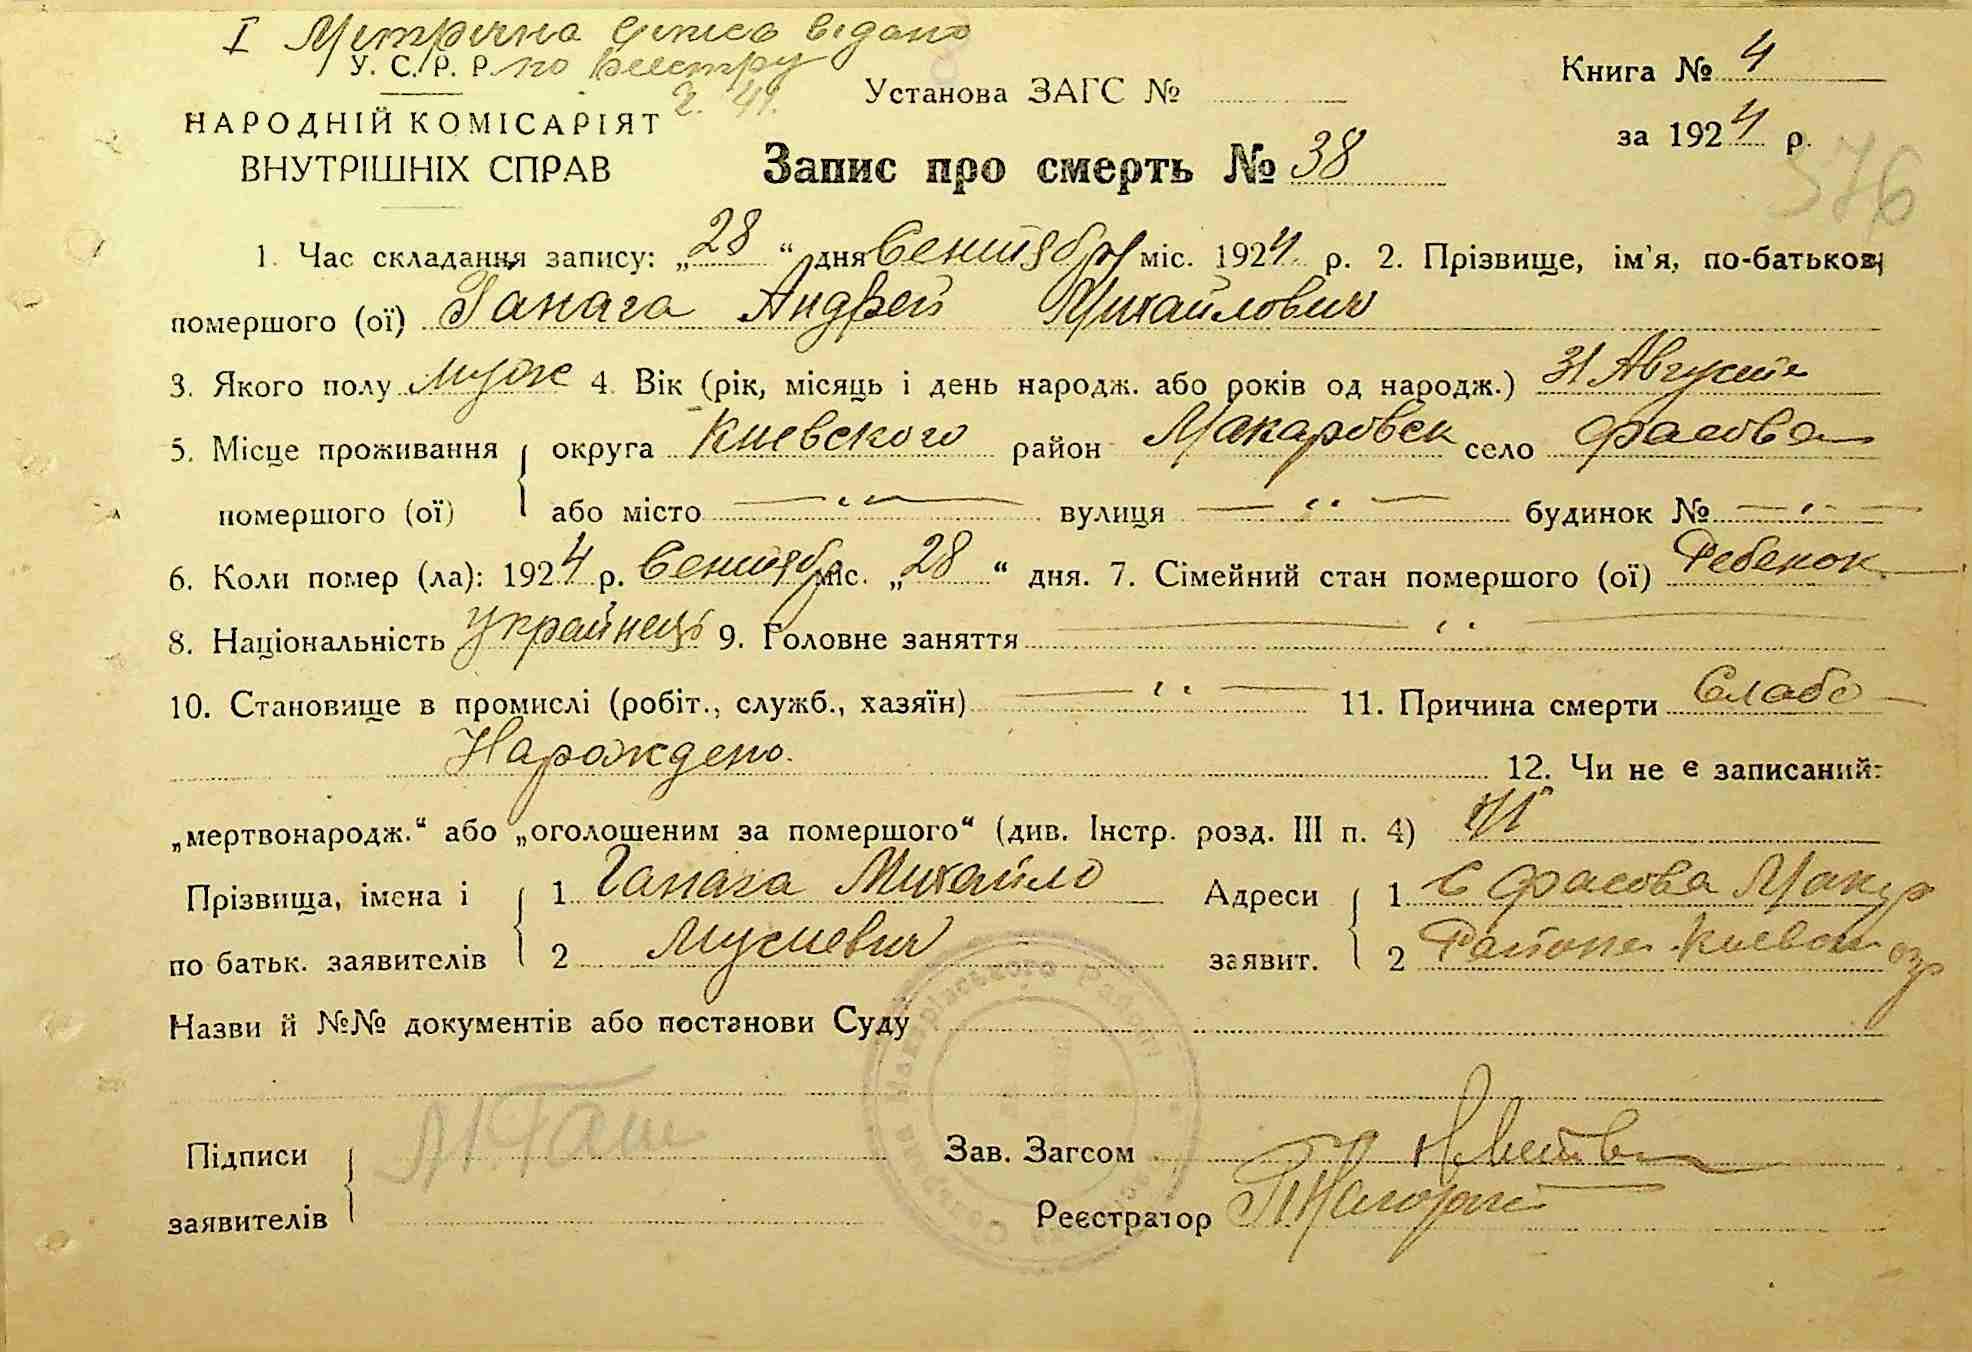 I Метрична випись видано
У. С. Р. Р. по реестру
г. 41.
Установа ЗАГС №
Книга № 4
НАРОДНІЙ КОМІСАРІЯТ
ВНУТРІШНІХ СПРАВ
за 1924 р.
Запис про смерть № 38
376
1. Час складання запису: „28“ дня Сентября міс. 1924 р. 2. Прізвище, ім'я, по-батькові
помершого (ої) Ганага Андрей Михайлович
3. Якого полу муж 4. Вік (рік, місяць і день народж. або років од народж.) 31 Августа
5. Місце проживання округа Киевского район Макаровск село Фасова
помершого (ої) або місто — „ — вулиця — „ — будинок № — „ —
6. Коли помер (ла): 1924 р. Сентябр міс. „28“ дня. 7. Сімейний стан помершого (ої) Ребенок
8. Національність украйнець 9. Головне заняття — „ —
10. Становище в промислі (робіт., служб., хазяїн) — „ — 11. Причина смерти Слабо
Нарождено. 12. Чи не є записаний:
„мертвонародж.“ або „оголошеним за помершого“ (див. Інстр. розд. III п. 4)
Прізвища, імена і 1 Ганага Михайло Адреси 1 С Фасова Макар
по батьк. заявителів 2 Мусиевич заявит. 2 Района Киевск окр
Назви й №№ документів або постанови Суду
Підписи М. Гана Зав. Загсом
заявителів Реєстратор